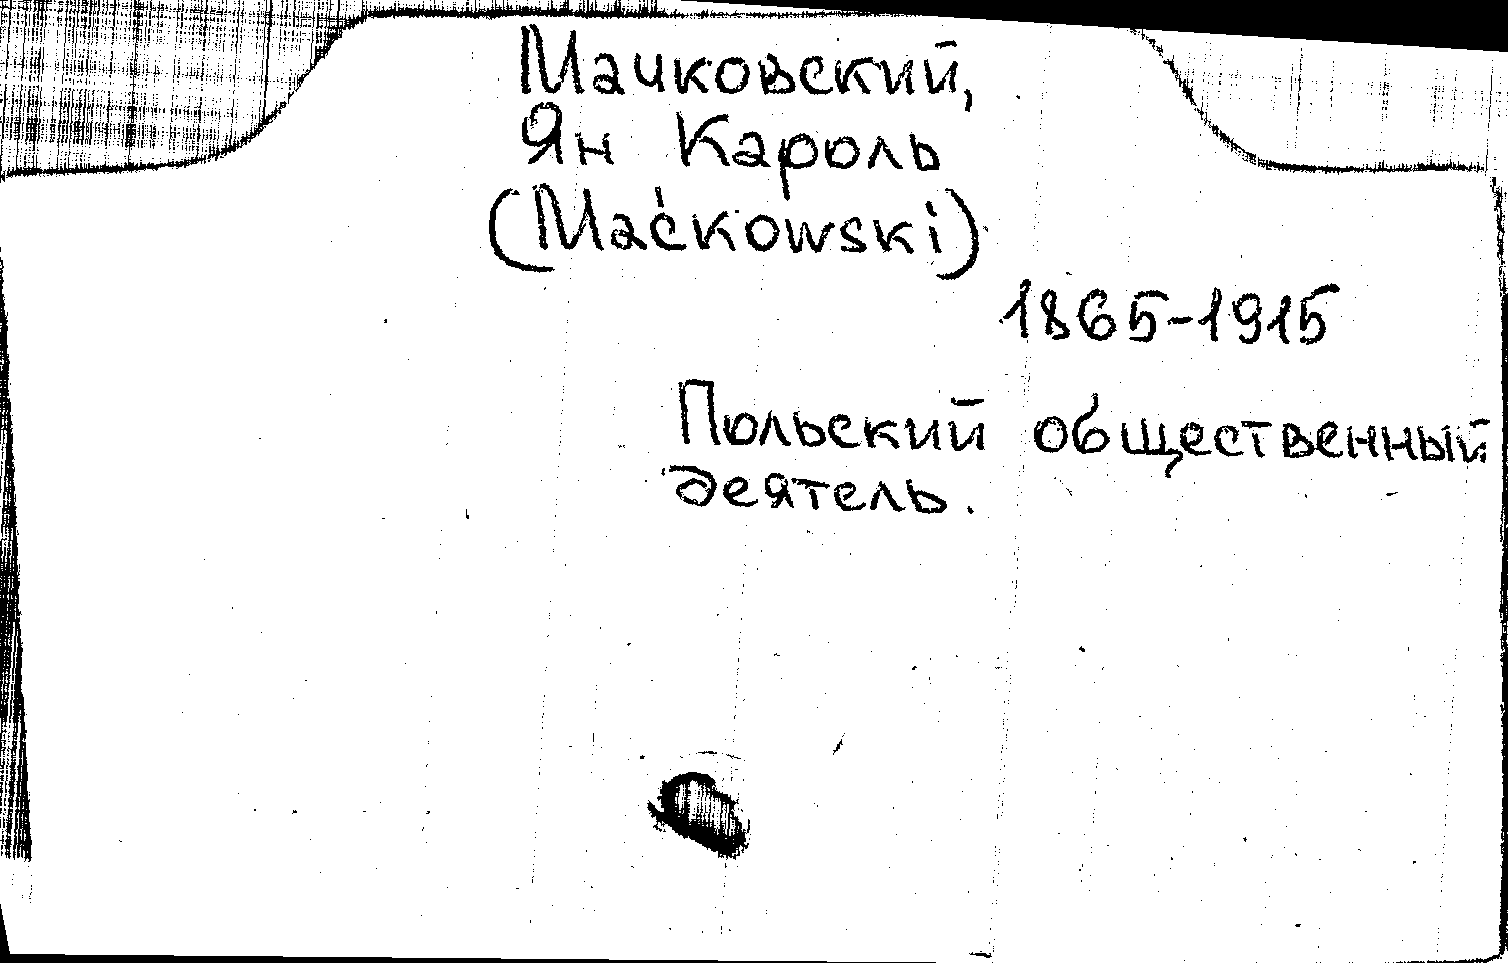 Мачковский,
Ян Кароль
(Maćkowski)
1865-1915
Польский общественный
деятель.